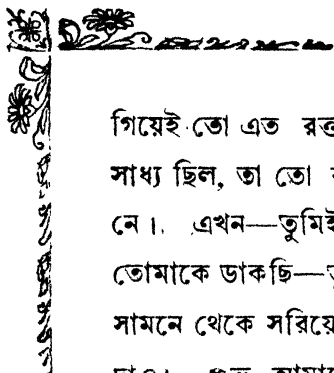 গিয়েই তো এত
সাধ্য ছিল, তা তো
নে। এখন—তুমিই
তোমাকে ডাকছি—
সামনে থেকে সরিয়ে